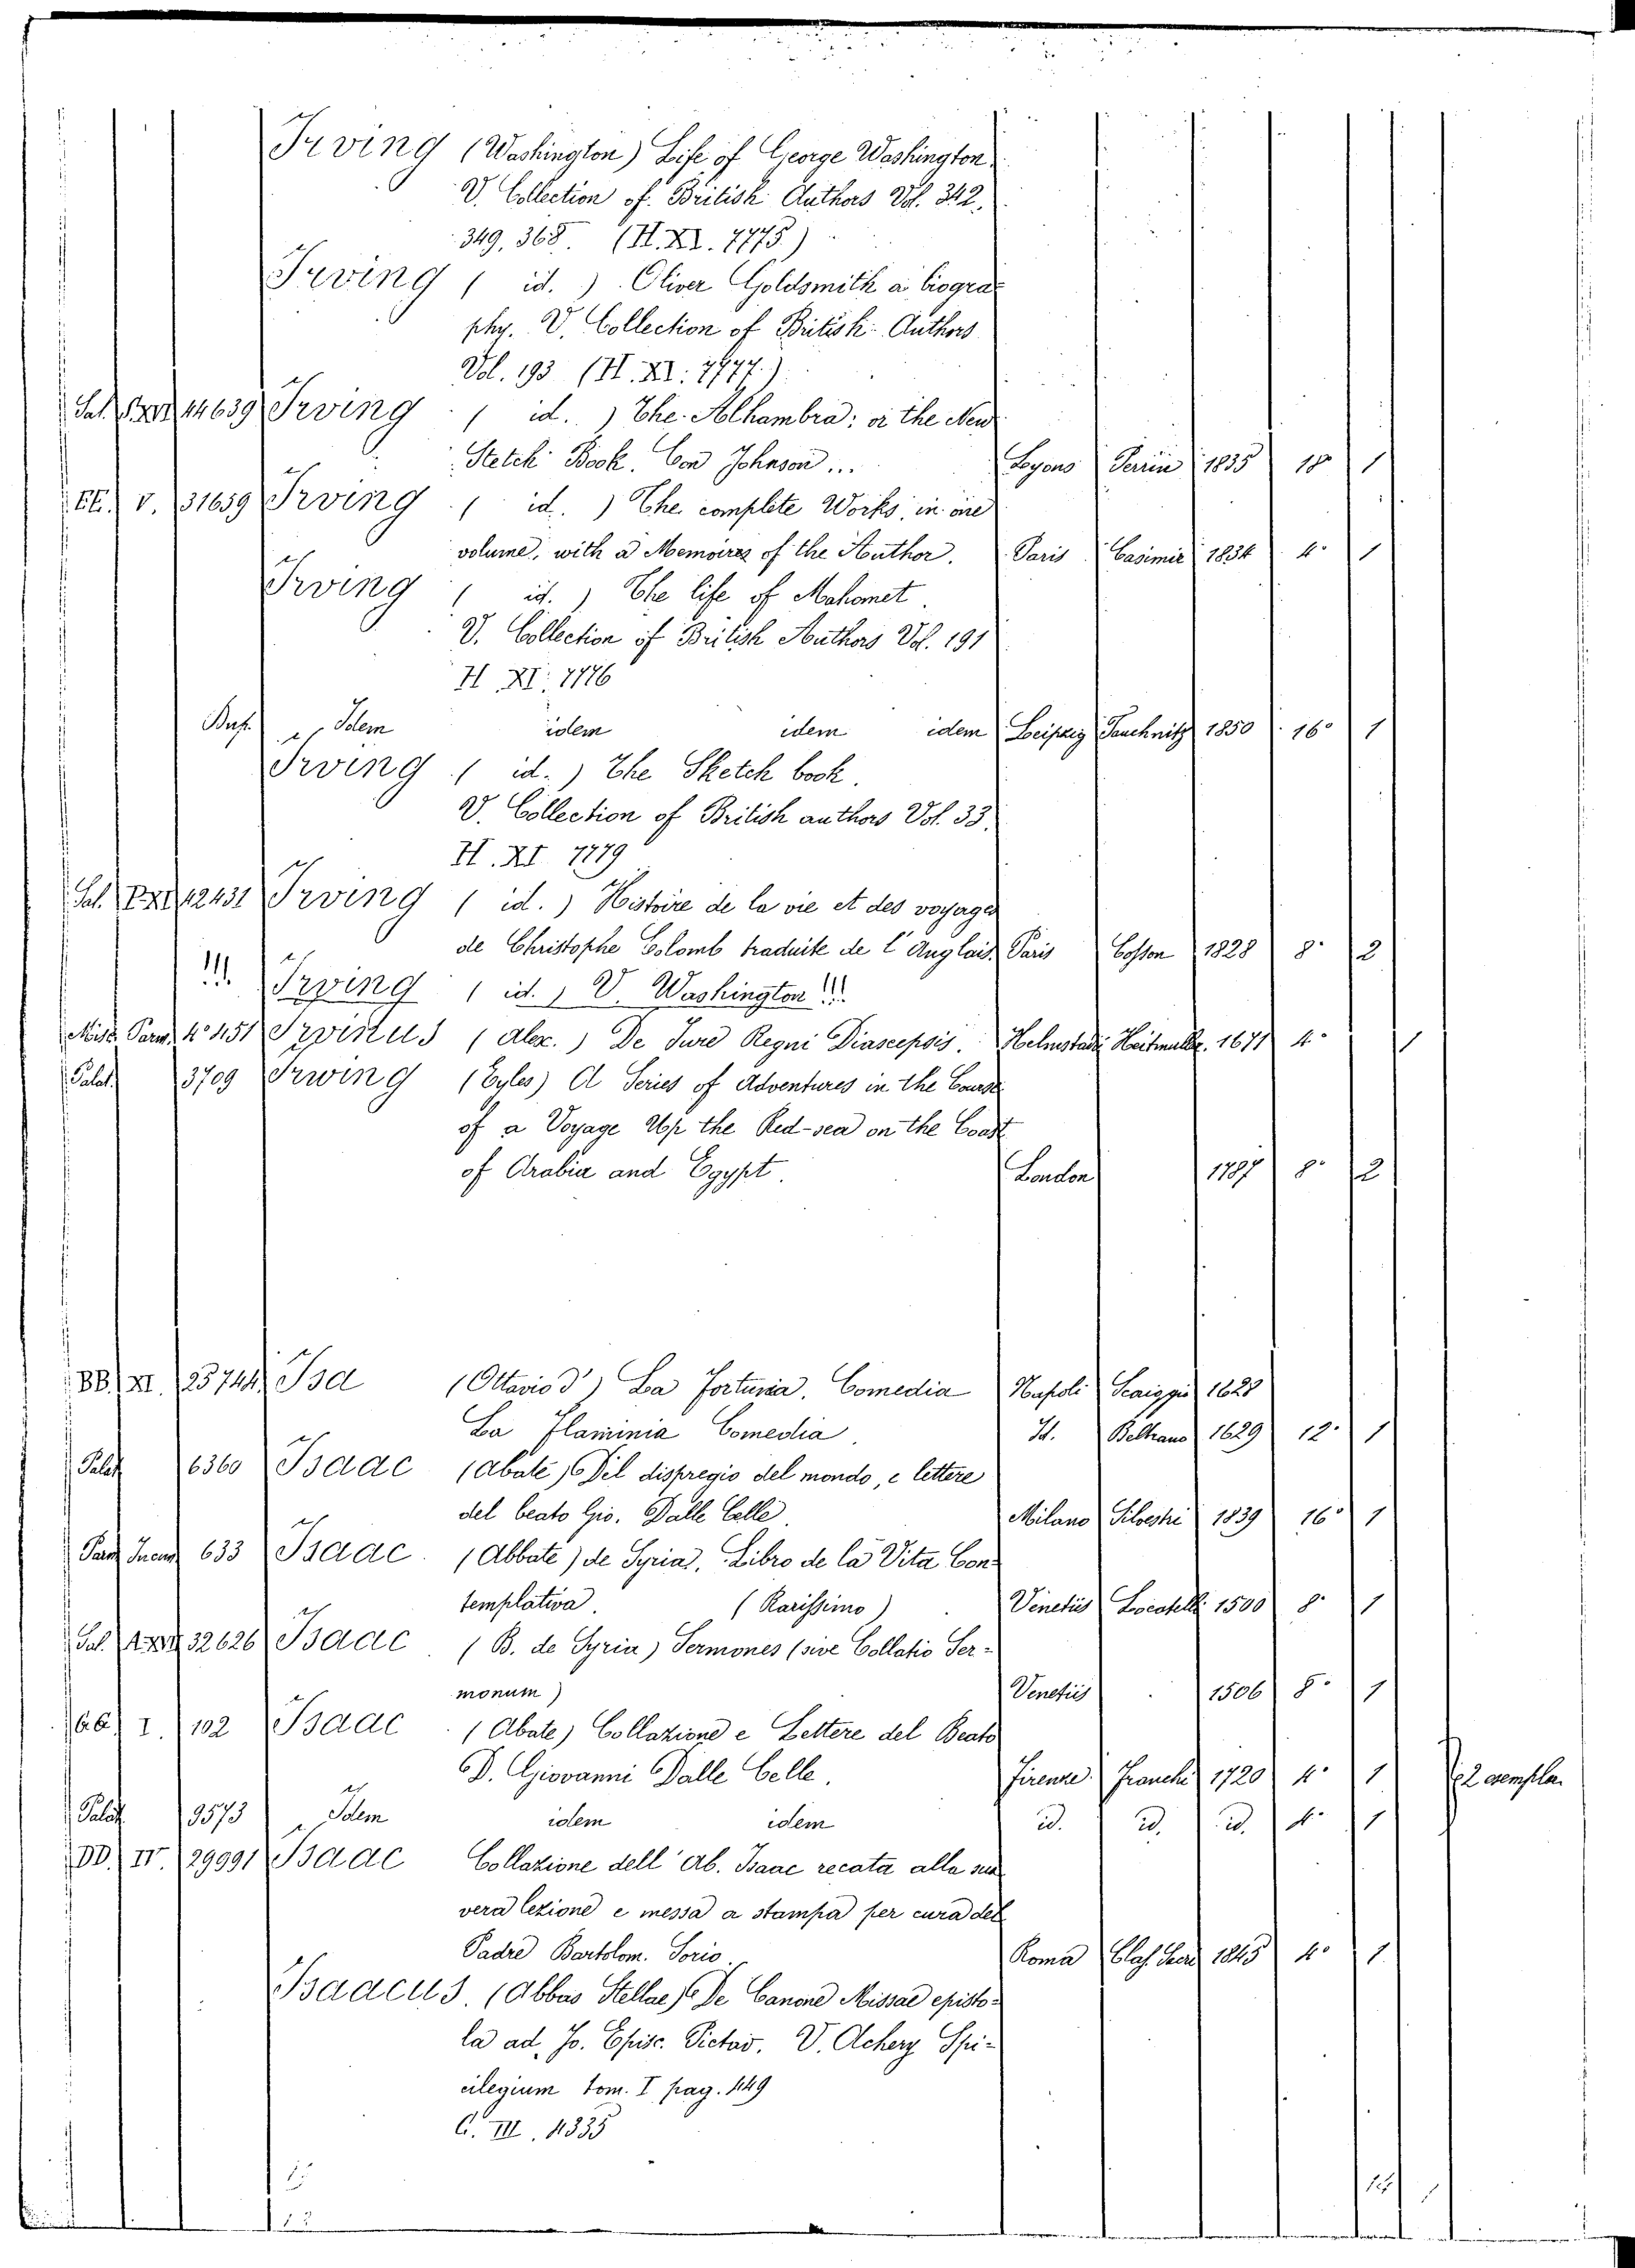 Irving (Washington) Life of George Washington
V. Collection of British Authors Vol. 342,
349, 368. (H. XI. 7775)
Irving ( id. ) Oliver Goldsmith a biogra-
phy. V. Collection of British Authors
Vol. 193 (H. XI. 7777.)
Sal. 14639 Irving ( id. ) The Alhambra; or the New
Stetch Book. Con Johnson ... Lyons Perrin 1835 18° 1
EE. V. 31659 Irving ( id. ) The complete Works, in one
volume, with a Memoires of the Author. Paris Casimir 1834 4° 1
Irving ( id. ) The life of Mahomet.
V. Collection of British Authors Vol. 191
H XI. 7776
Idem idem idem idem Leipzig Tauchnitz 1850 16° 1
Irving ( id. ) The Sketch book.
V. Collection of British authors Vol. 33.
H. XI 7779
Sal. 12431 Irving ( id. ) Histoire de la vie et des voyages
de Christophe Colomb traduite de l'Anglais. Paris Cosson 1828 8° 2
!!! Irving ( id. ) V. Washington !!!
Misc. Parm. 4° 451 Irvinus (Alex.) De Jure Regni Diascepsis. Helmstadii Heitmuller. 1671 4° 1
Palat. 3709 Irwing (Eyles) A Series of Adventures in the Course
of a Voyage Up the Red-sea on the Coast
of Arabia and Egypt. London 1787 8° 2
BB. XI. 25744 Isa (Ottavio d') La Fortunia. Comedia Napoli Scariggio 1628
La Flaminia Comedia. Id. Beltrano 1629 12° 1
Palat. 6360 Isaac (Abate) Del dispregio del mondo, e lettere
del beato Gio. Dalle Celle. Milano Silvestri 1839 16° 1
Parm. Incun. 633 Isaac. (Abbate) de Syria. Libro de la Vita Con-
templativa. (Rarissimo) Venetiis Locatelli 1500 8° 1
Sal. 32626 Isaac. (B. de Syria) Sermones (sive Collatio Ser-
monum) Venetiis 1506 8° 1
I. 102 Isaac. (Abate) Collazione e Lettere del Beato
D. Giovanni Dalle Celle. Firenze Franchi 1720 4° 1 2 esemplar.
Palat. 9573 Idem idem idem id. id. id. 4° 1
DD. IV. 29991 Isaac Collazione dell'Ab. Isaac recata alla sua
vera lezione e messa a stampa per cura del
Padre Bartolom. Sorio. Roma Clas. Sacri 1845 4° 1
Isaacus. (Abbas Stellae) De Canone Missae episto-
la ad Jo. Episc. Pictav. V. Achery Spi-
cilegium tom. I pag. 449
G. III. 4335